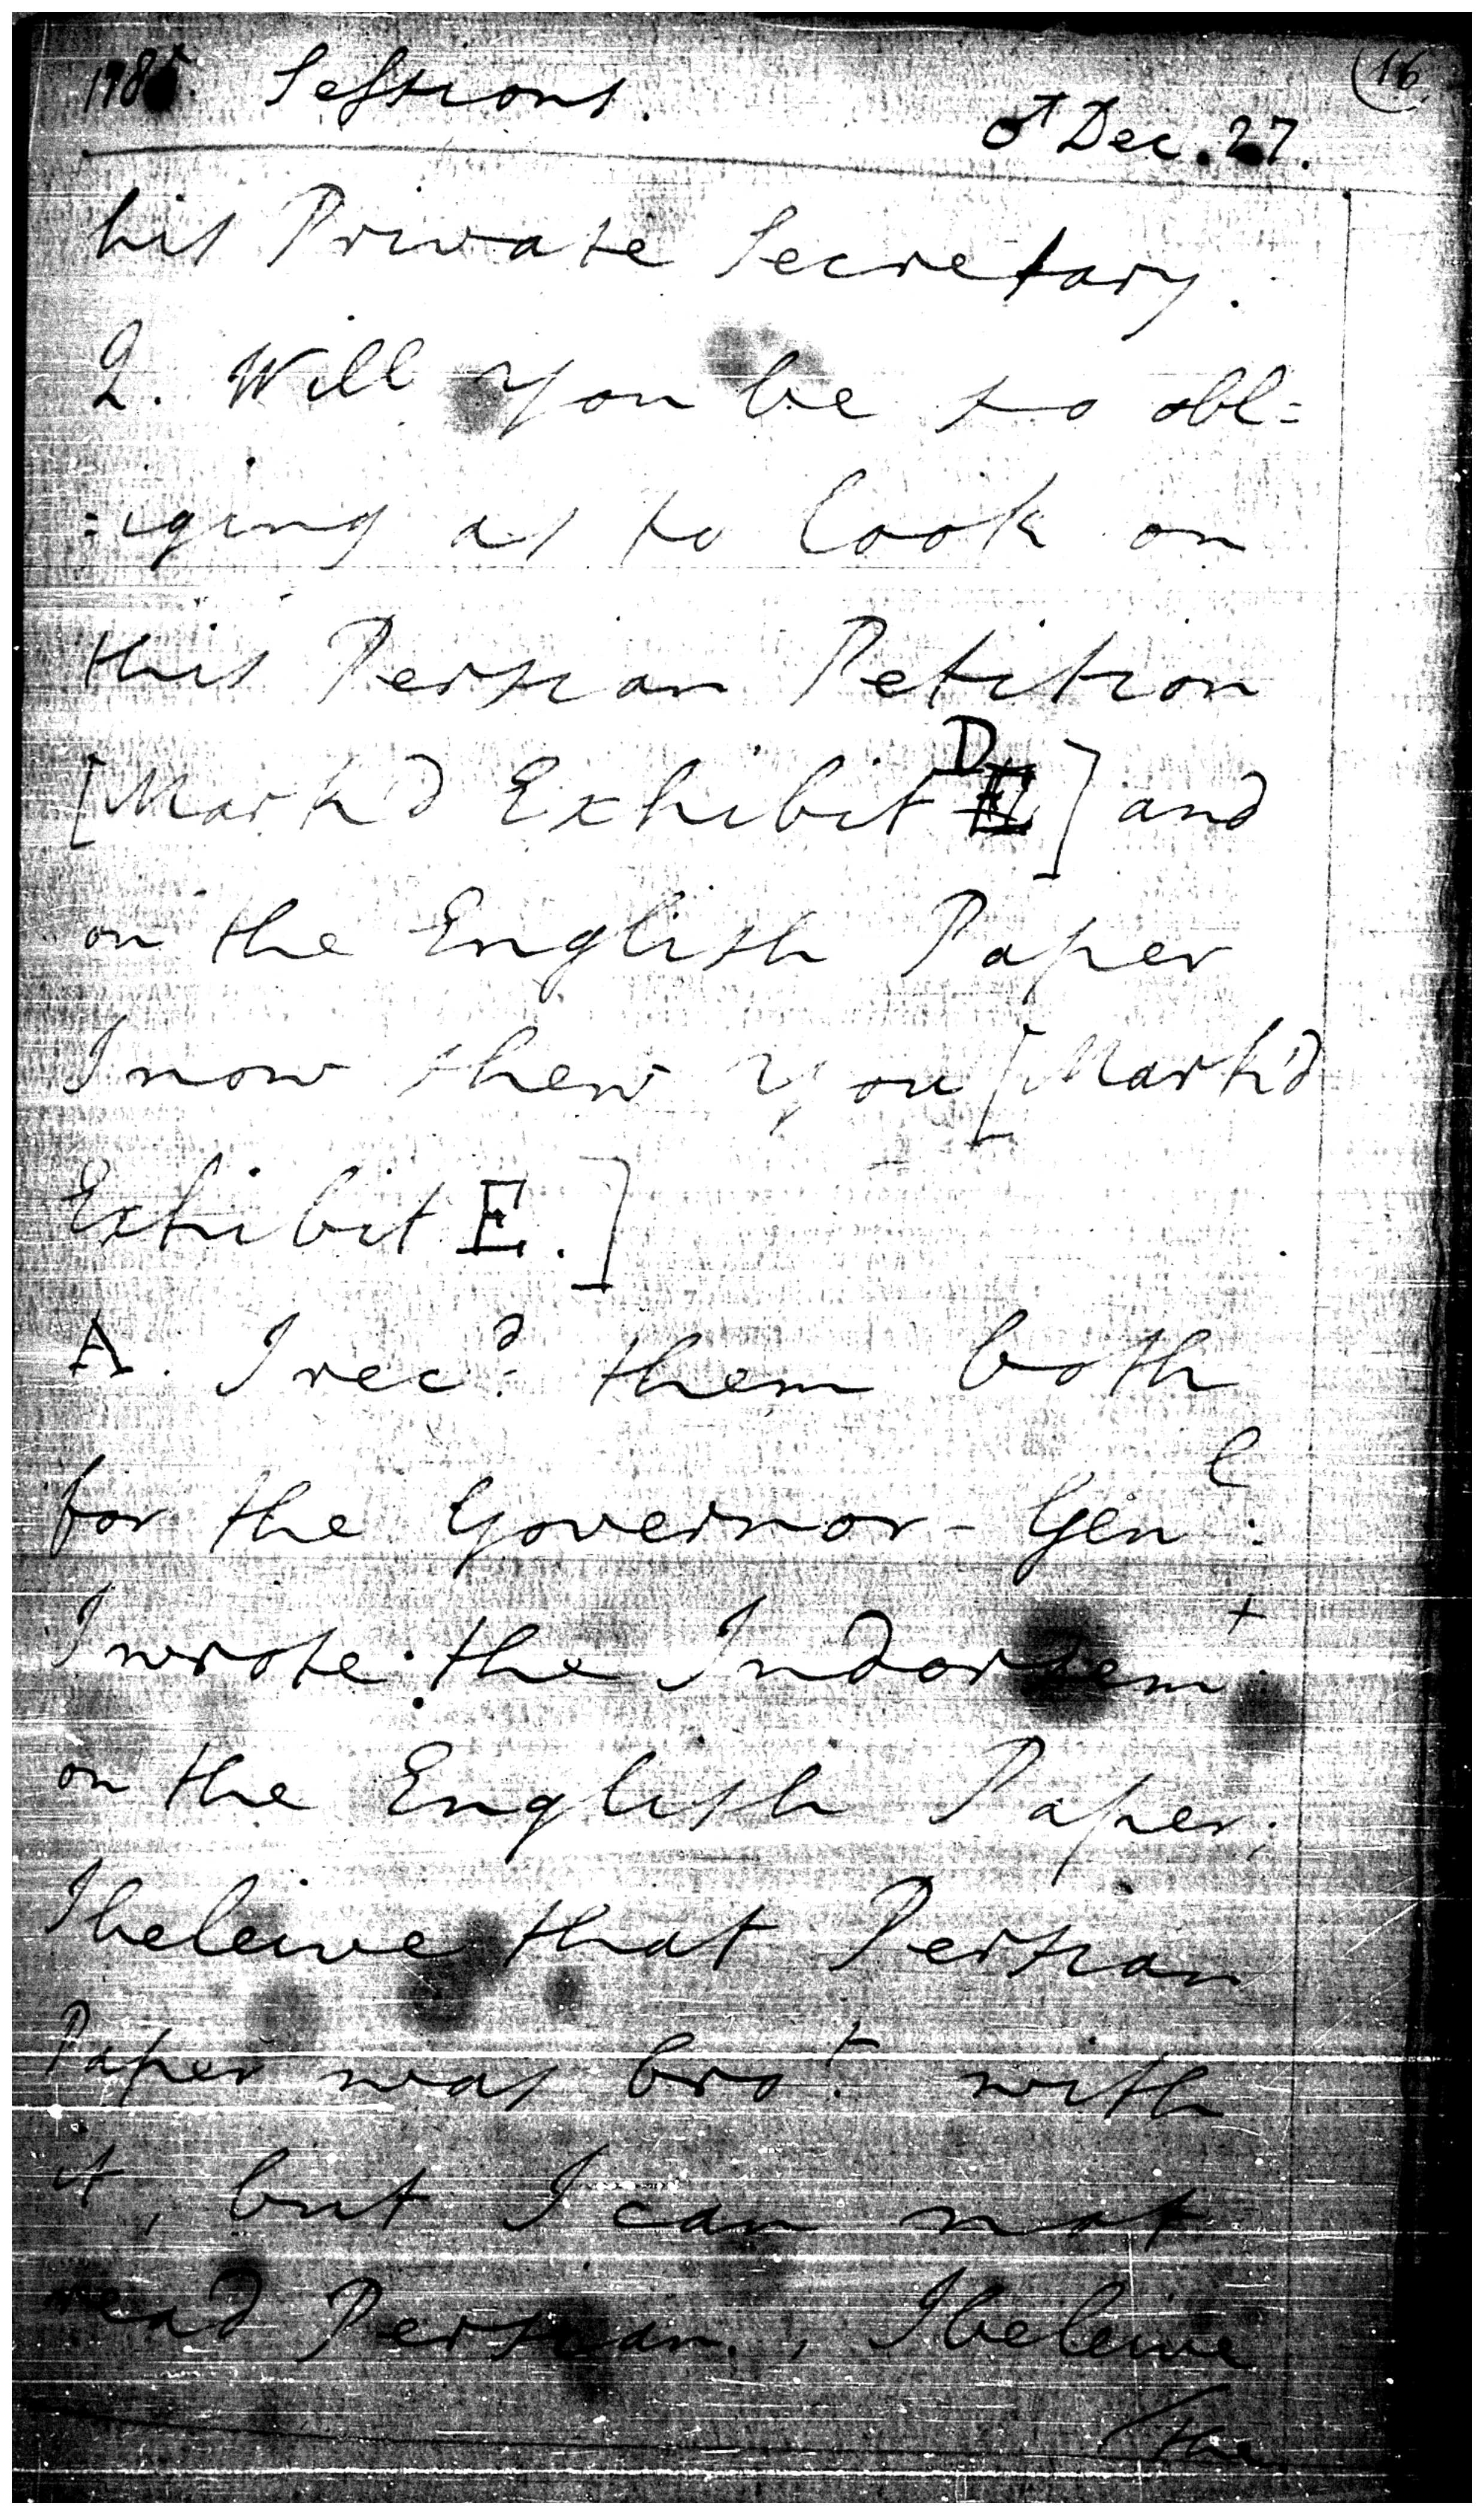 1785. Sessions. (16
♂ Dec. 27.
his Private Secretary.
Q. Will you be so obl=
=iging as to look on
this Persian Petition
[Mark'd Exhibit D] and
on the English Paper
I now shew you [Mark'd
Exhibit E.]
A. I recd. them both
for the Governor-Genl.
I wrote the Indorsemt.
on the English Paper;
I beleive that Persian
Paper was brot. with
it, but I can not
read Persian., I beleive
(the